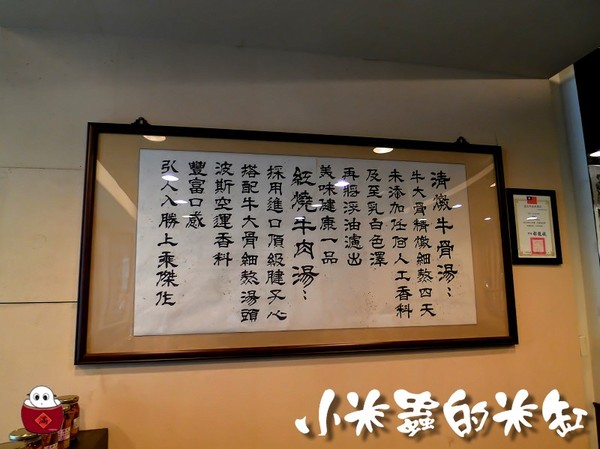 清燉牛骨湯：
牛大骨精燉細熬四天
未添加任何人工香料
及至乳白色澤
再將浮油濾出
美味健康一品
紅燒牛肉湯：
採用進口頂級腱子心
搭配牛大骨細熬湯頭
波斯空運香料
豐富口感
引人入勝上乘傑作
小米蟲的米缸